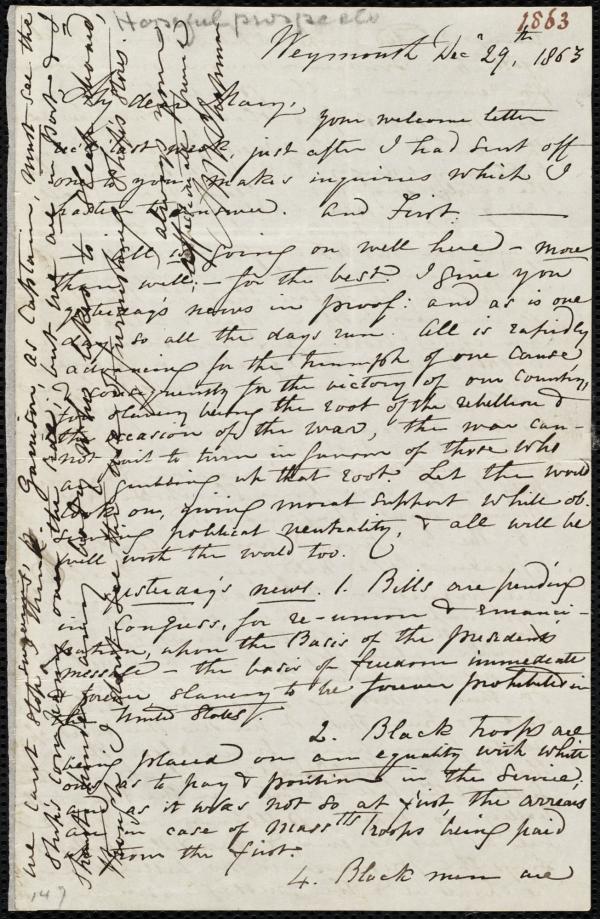 Hopeful prospects
1863
Weymouth Dec. 29th, 1863
My dear Mary,
your welcome letter
rec'd last week, just after I had sent off
one to you, makes inquiries which I
hasten to answer. And First.
all is going on well here - more
than well: - for the best. I give you
yesterday's news in proof: and as is one
day so all the days run. All is rapidly
advancing for the triumph of one cause,
& consequently for the victory of our Country,
for slavery being the root of the rebellion &
the occasion of the war, the war can-
not fail to turn in favour of those who
are grubbing up that root. Let the world
look on, giving moral support while ob-
serving political neutrality, & all will be
well with the world too.
Yesterday's news. 1. Bills are pending
in Congress, for re-union & Emanci-
pation, upon the Basis of the president's
message - the basis of freedom immediate
& forever slavery to be forever prohibited in
the United States.
2. Black troops are
being placed on an equality with white
ones as to pay & position in the Service,
and as it was not so at first, the arrears
are in case of Massts troops being paid
from the first.
4. Black men are
we can't stop
Garrison, as Captain, must see the
ship's company over the side; but we are in Port & I
should hinder any body who wishes to sleep aboard,
though I
always yours
affectionately
147